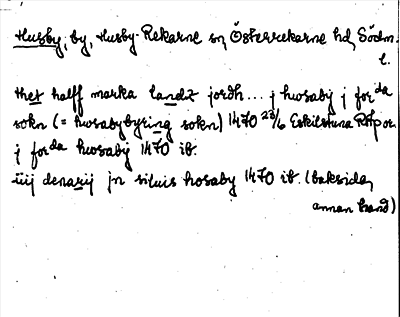 Husby, by, Husby-Rekarne sn, Österrekarne hd, Södm.
l.
thet halff marka landz jordh... j husaby j forda
sokn (= husabybyring sokn) 1470 23/6 Eskilstuna Råp or.
j forda husaby 1470 ib.
iiij denarij jn siluis hosaby 1470 ib. (baksida,
annan hand)